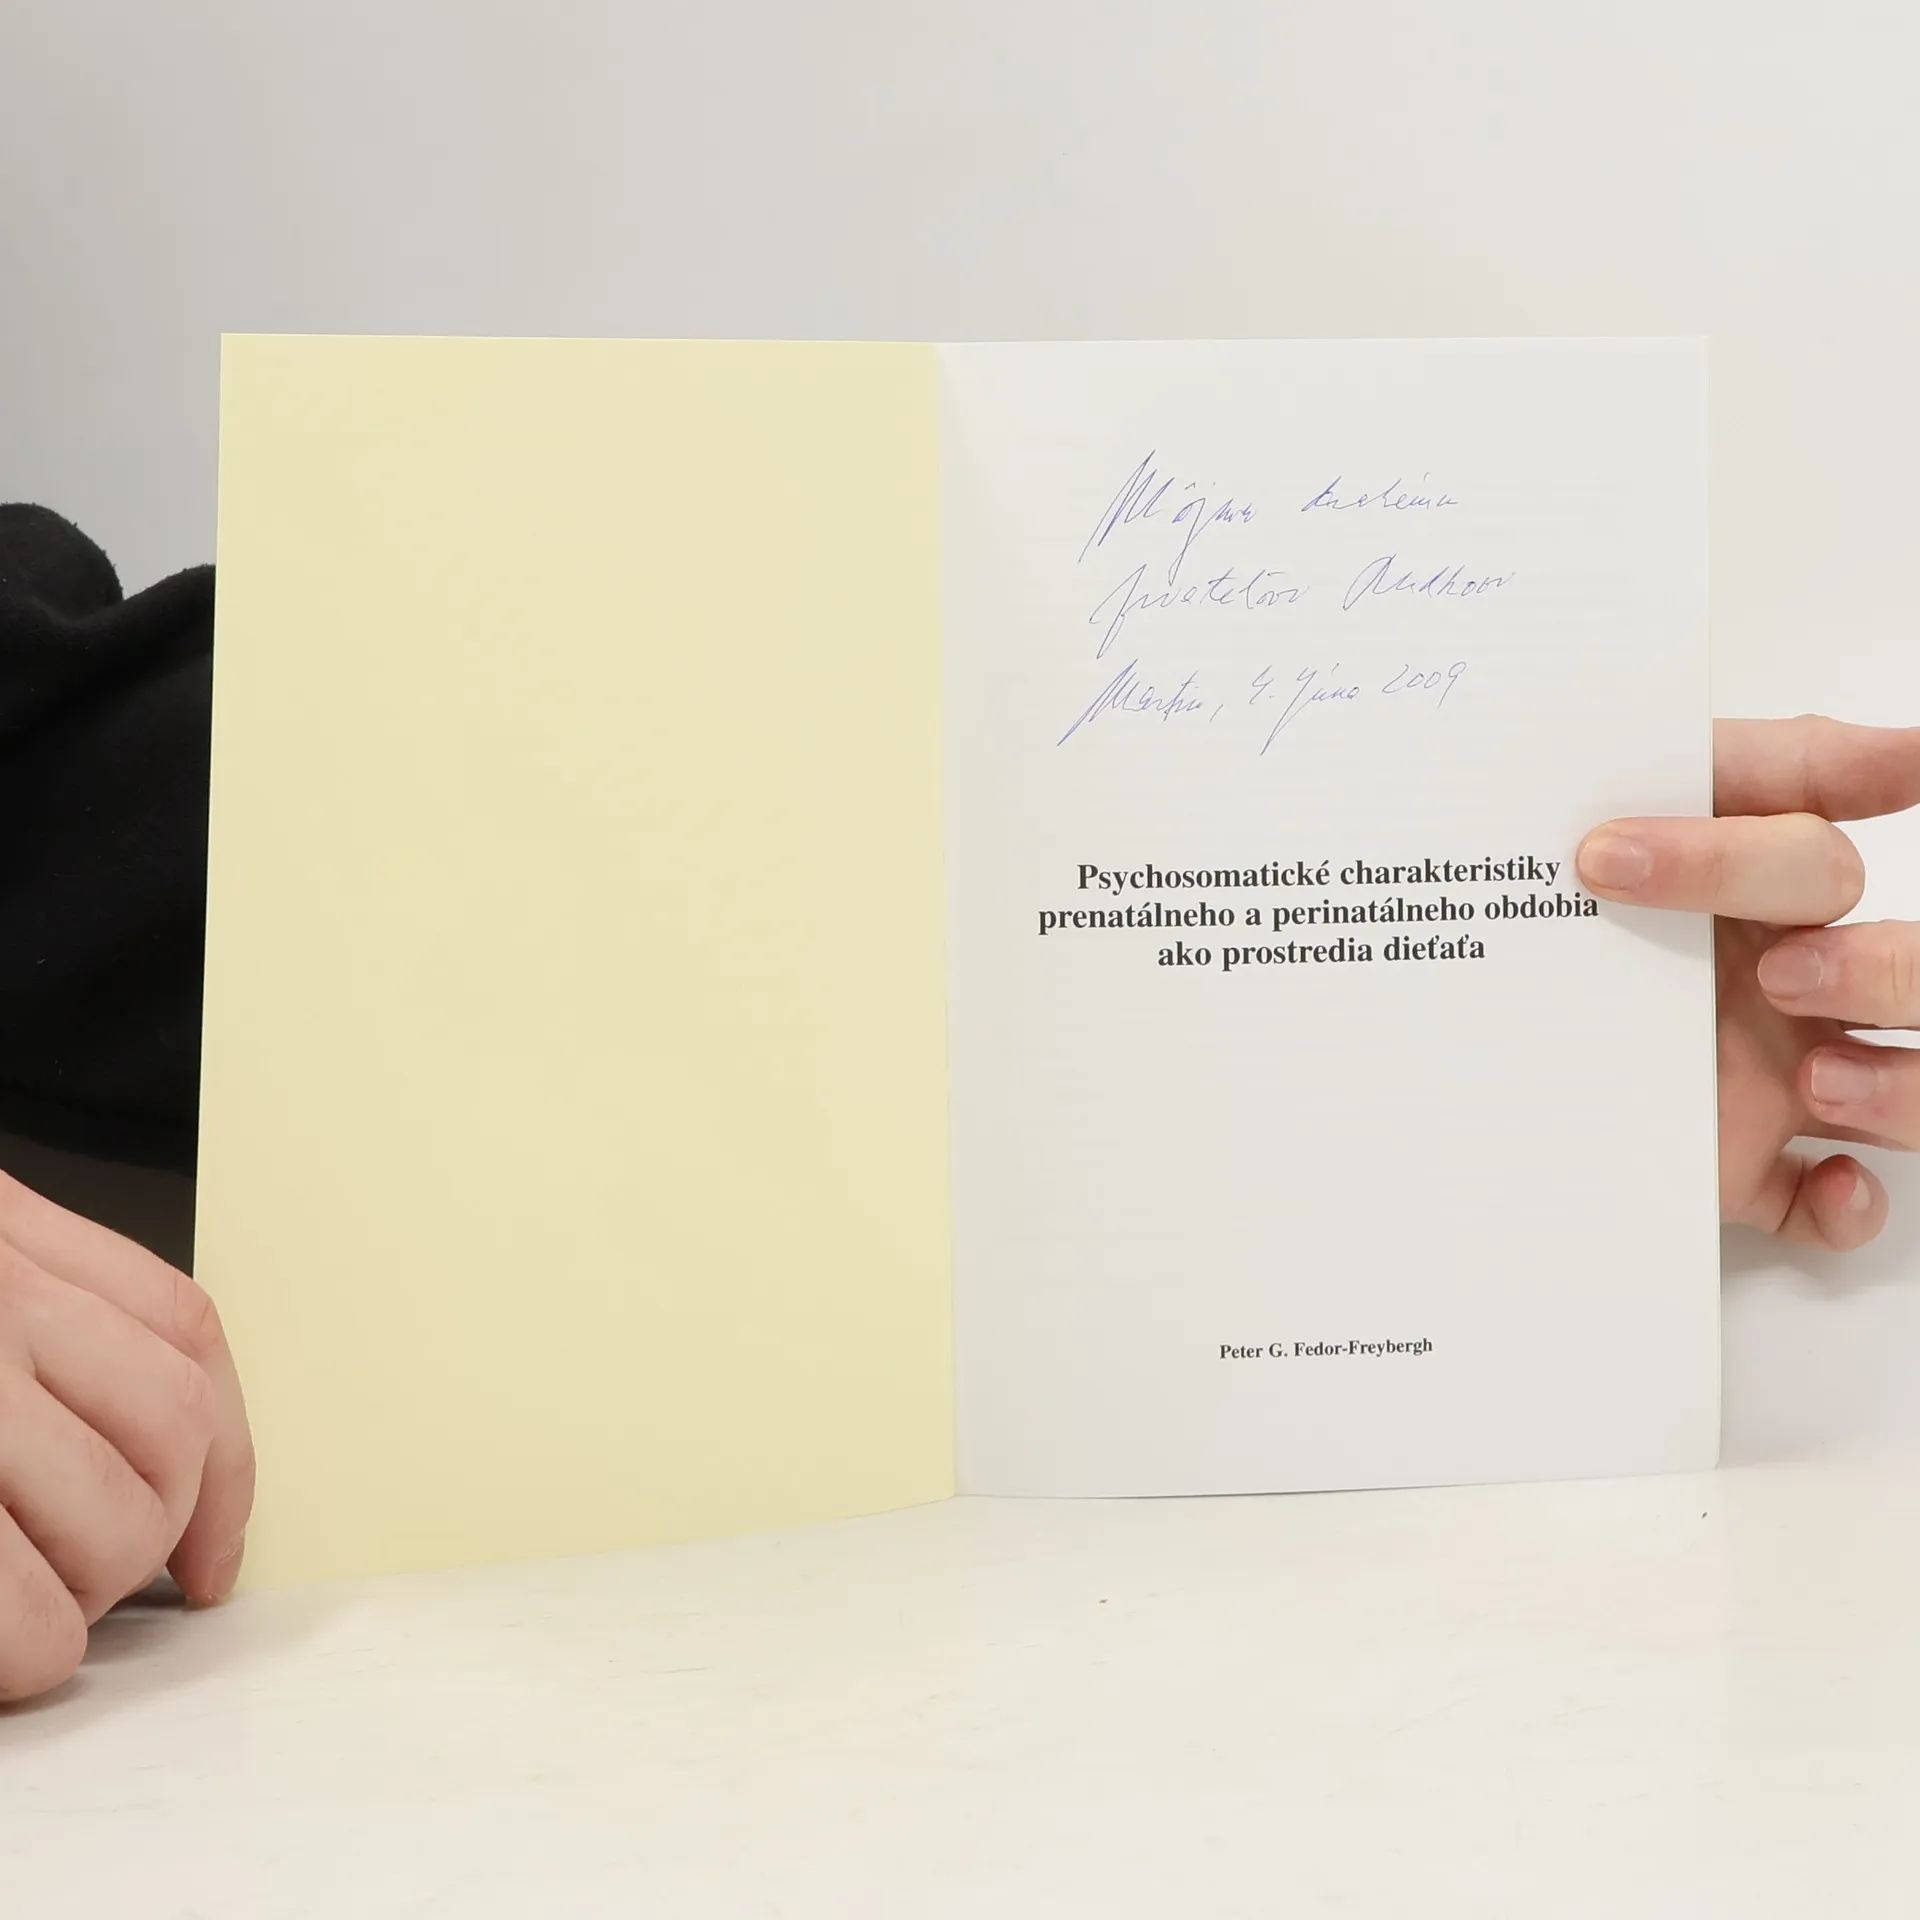 Môjmu drahému
priateľovi Rudkovi
Martin, 4. Júna 2009
Psychosomatické charakteristiky
prenatálneho a perinatálneho obdobia
ako prostredia dieťaťa
Peter G. Fedor-Freybergh